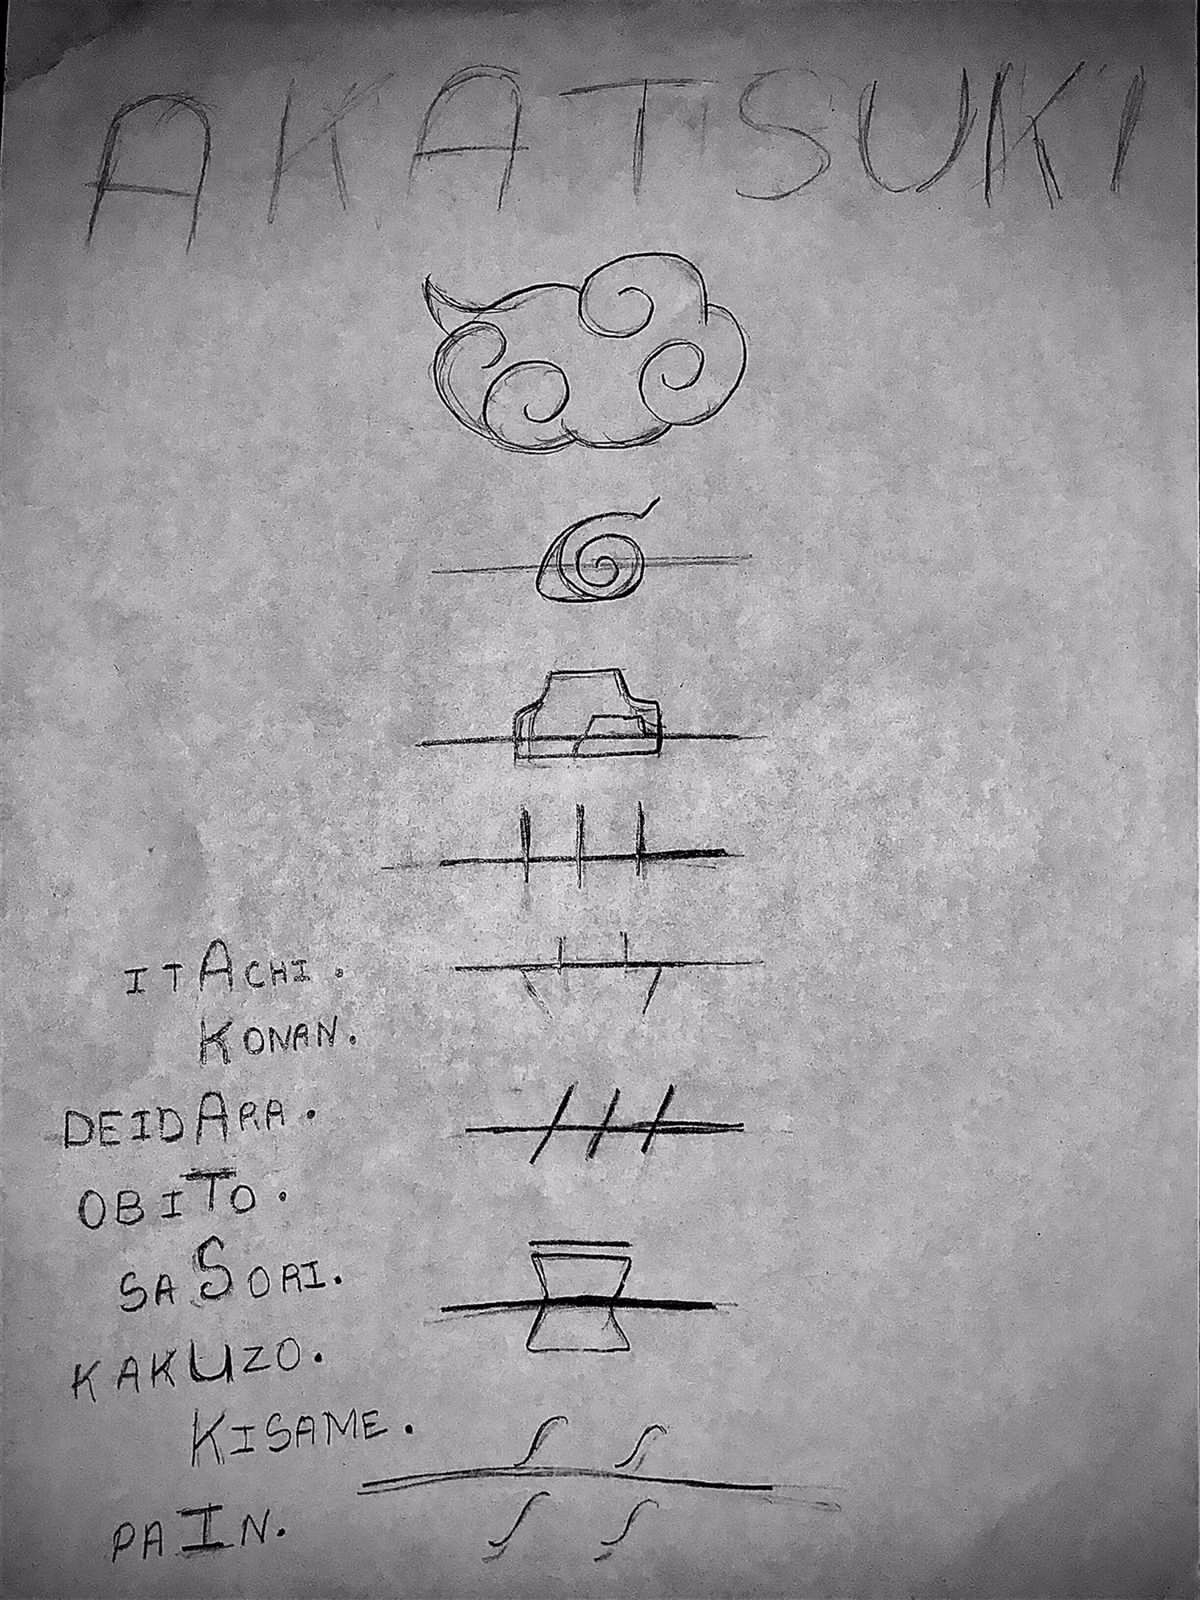 AKATSUKI
ITACHI.
KONAN.
DEIDARA.
OBITO.
SASORI.
KAKUZO.
KISAME.
PAIN.